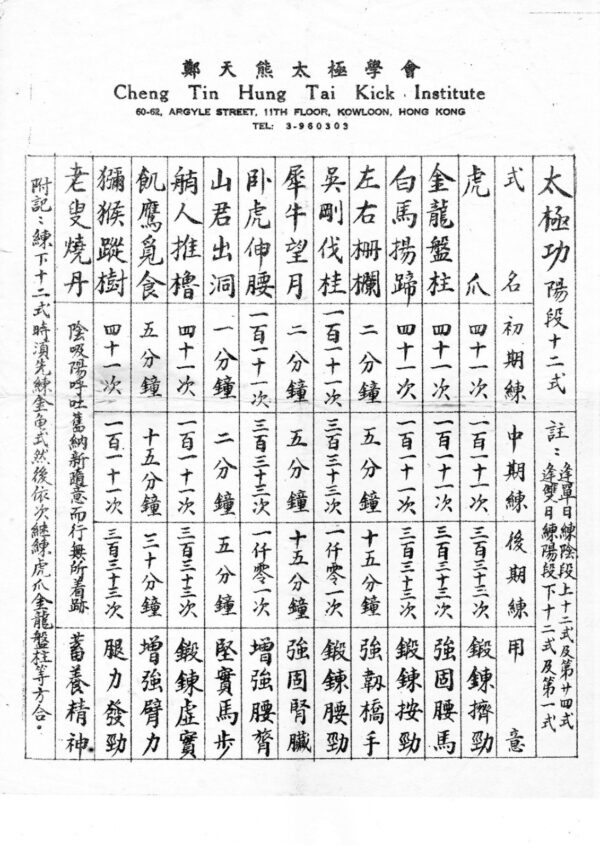 鄭天熊太極學會
Cheng Tin Hung Tai Kick Institute
60-62, ARGYLE STREET, 11TH FLOOR, KOWLOON, HONG KONG
TEL: 3-960303
太極功陽段十二式
註：逢單日練陰段上十二式及第廿四式
逢雙日練陽段下十二式及第一式
式名 初期練 中期練 後期練 用意
虎爪 四十一次 一百一十一次 三百三十三次 鍛鍊擠勁
金龍盤柱 四十一次 一百一十一次 三百三十三次 強固腰馬
白馬揚蹄 四十一次 一百一十一次 三百三十三次 鍛鍊按勁
左右柵欄 二分鐘 五分鐘 十五分鐘 強韌橋手
吳剛伐桂 一百一十一次 三百三十三次 一仟零一次 鍛鍊腰勁
犀牛望月 二分鐘 五分鐘 十五分鐘 強固腎臟
卧虎伸腰 一百一十一次 三百三十三次 一仟零一次 增強腰膂
山君出洞 一分鐘 二分鐘 五分鐘 堅實馬步
艄人推櫓 四十一次 一百一十一次 三百三十三次 鍛鍊虛實
飢鷹覓食 五分鐘 十五分鐘 三十分鐘 增強臂力
獼猴蹤樹 四十一次 一百一十一次 三百三十三次 腿力發勁
老叟燒丹 陰吸陽呼吐舊納新隨意而行無所着跡 蓄養精神
附記：練下十二式時須先練金魚式然後依次継練虎爪金龍盤柱等方合。